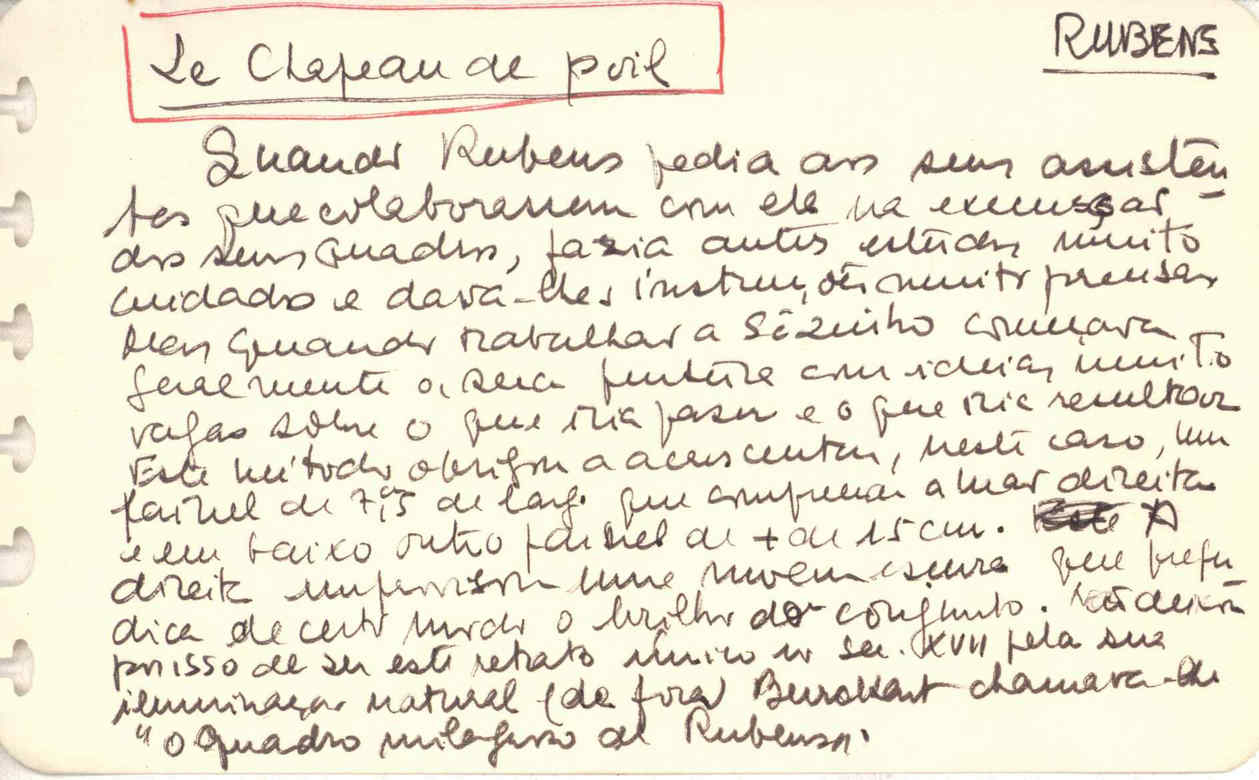 Le Chapeau de poil
RUBENS
Quando Rubens pedia aos seus assisten
tes que colaborassem com ele na execução
dos seus quadros, fazia antes estudos muito
cuidados e dava-lhes instruções muito precisas
Mas quando trabalhava sòzinho começava
geralmente a sua pintura com ideias muito
vagas sobre o que iria fazer e o que iria resultar
Este método obrigou a acrescentar, neste caso, um
painel de 7,5 de larg. que compreende a mão direita
e em baixo outro painel de + de 15 cm. A
direita improvisou uma nuvem escura que preju
dica de certo modo o brilho do conjunto. Não deixa
por isso de ser este retrato único no séc. XVII pela sua
iluminação natural (de fora) Burckhart chamava-lhe
"o quadro milagroso de Rubens".